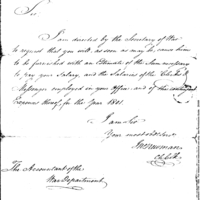 Sir
I am directed by the Secretary of War
to request that you will, as soon as may be, cause him
to be furnished with an Estimate of the Sum necessary
to pay your Salary, and the Salaries of the Clerks &
Messenger employed in your Office and of the contingent
Expenses thereof, for the Year 1801.
I am Sir
Your most obt. Servt.
Clk.
The Accountant of the
War Department